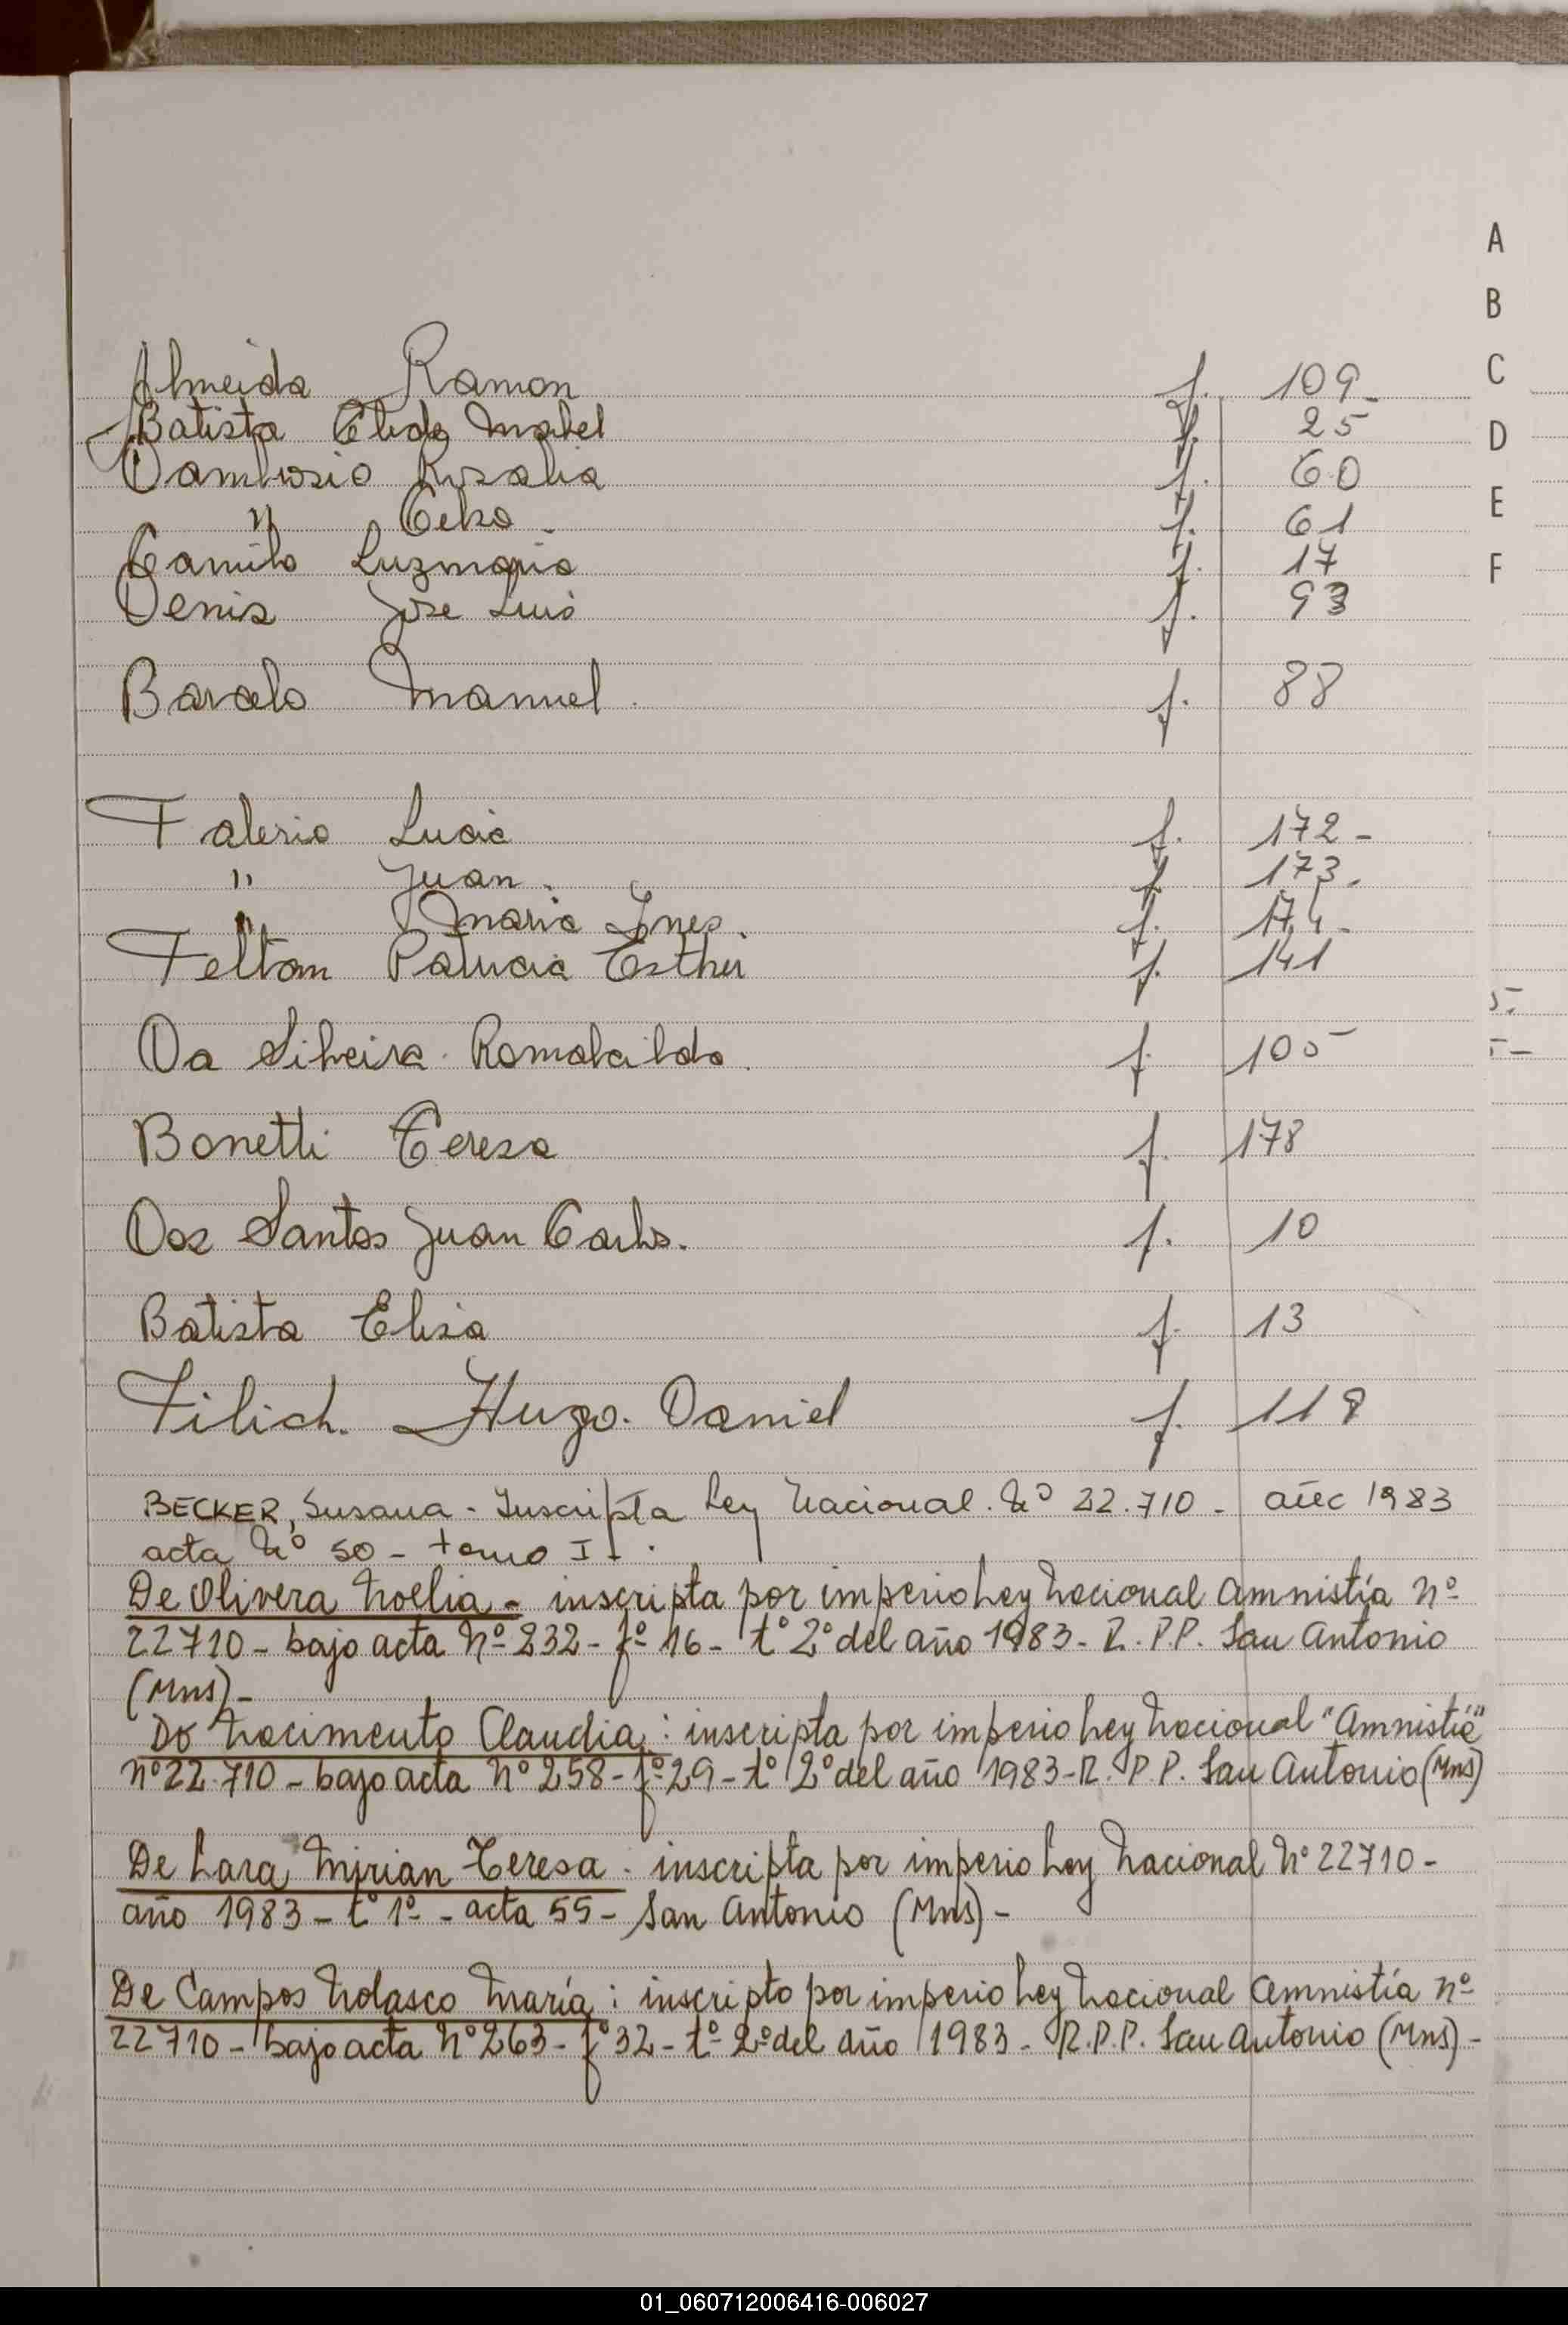 A
B
C
D
E
F
Almeida Ramon f. 109-
Batista Elida Mabel f. 25
Dambrosio Rosalia f. 60
" Celso f. 61
Camilo Luzmaria f. 17
Denis Jose Luis f. 93
Barcelo Manuel. f. 88
Falerio Lucia f. 172-
" Juan. f. 173.
" Maria Ines. f. 174-
Feltan Patricia Esther f. 141
Da Silveira f. 105
Bonetti Teresa f. 178
Dos Santos Juan Carlos. f. 10
Batista Elisa f. 13
Filich. Hugo. Daniel f. 118
BECKER, Susana - Inscripta Ley Nacional. Nº 22.710 - año 1983
acta Nº 50 - tomo I - .
De Olivera Noelia - inscripta por imperio Ley Nacional Amnistía nº
22710 - bajo acta Nº 232 - fº 16 - tº 2º del año 1983 - R. P.P. San Antonio
(Mns) -
Do Nacimento Claudia : inscripta por imperio Ley Nacional "Amnistía"
nº 22.710 - bajo acta nº 258 - fº 29 - tº 2º del año 1983 - R. P. P. San Antonio (Mns)
De Lara Mirian Teresa : inscripta por imperio Ley Nacional Nº 22710 -
año 1983 - tº 1º - acta 55 - San Antonio (Mns) -
De Campos Nolasco María : inscripto por imperio Ley Nacional Amnistía nº
22710 - bajo acta Nº 263 - fº 32 - tº 2º del año 1983 - R.P.P. San Antonio (Mns) -
01_060712006416-006027